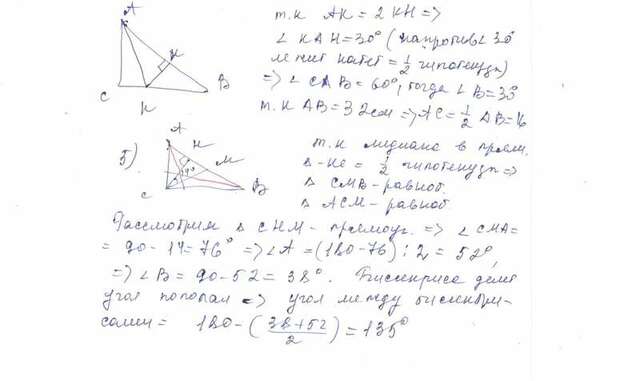 A
т.к AK = 2 KH =>
∠ KAH = 30° (напротив ∠ 30°
лежит катет = 1/2 гипотенузы)
H
=> ∠ CAB = 60°, тогда ∠ B = 30°
C
K
B
т.к AB = 32 см => AC = 1/2 AB = 16
5)
A
H
M
14°
C
B
т.к медиана в прям.
Δ-ке = 1/2 гипотенузы =>
Δ CMB - равноб.
Δ ACM - равноб.
Рассмотрим Δ CHM - прямоуг. => ∠ CMA =
= 90 - 14 = 76° => ∠ A = (180 - 76) : 2 = 52°,
=> ∠ B = 90 - 52 = 38°. Биссектриса делит
угол пополам => угол между биссектри-
сами = 180 - (38+52/2) = 135°